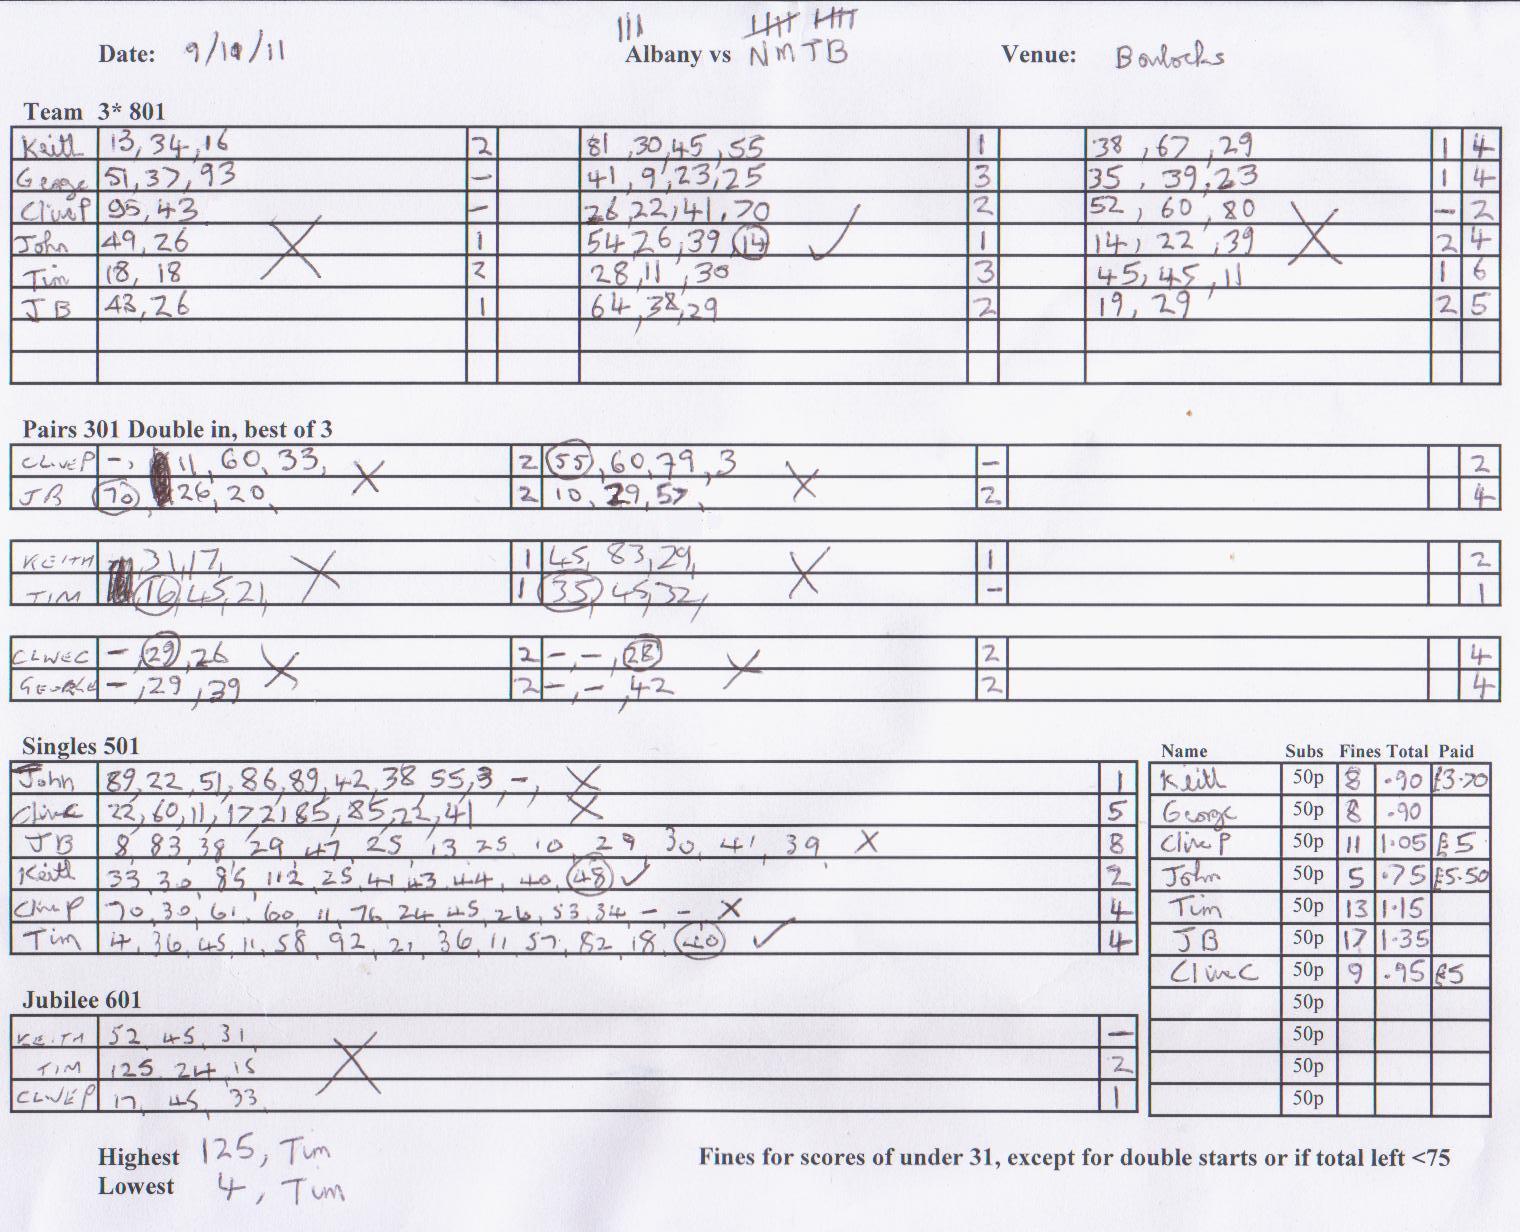 Date: 9/10/11 Albany vs NMTB Venue:
Team 3* 801
Keith 13, 34, 16 2 81, 30, 45, 55 1 38, 67, 29 1 4
George 51, 37, 93 - 41, 9, 23, 25 3 35, 39, 23 1 4
Clive P 95, 43 - 26, 22, 41, 70 2 52, 60, 80 - 2
John 49, 26 1 54, 26, 39, 14 1 14, 22, 39 2 4
Tim 18, 18 2 28, 11, 30 3 45, 45, 11 1 6
JB 43, 26 1 64, 38, 29 2 19, 29 2 5
Pairs 301 Double in, best of 3
CLIVE P -, 11, 60, 33, 2 55, 60, 79, 3 - 2
JB 70, 26, 20, 2 10, 29, 57, 2 4
KEITH 31, 17, 1 45, 83, 29, 1 2
TIM 16, 45, 21, 1 35, 45, 32, - 1
CLIVE C -, 29, 26 2 -, -, 28 2 4
GEORGE -, 29, 39 2 -, -, 42 2 4
Singles 501
John 89, 22, 51, 86, 89, 42, 38, 55, 3, -, 1
Clive C 22, 60, 11, 17, 21, 85, 85, 22, 41 5
JB 8, 83, 38, 29, 47, 25, 13, 25, 10, 29, 30, 41, 39, 8
Keith 33, 30, 85, 112, 25, 41, 43, 44, 40, 48 2
Clive P 70, 30, 61, 60, 11, 76, 24, 45, 26, 53, 34 - - 4
Tim 4, 36, 45, 11, 58, 92, 21, 36, 11, 57, 82, 18, 40 4
Name Subs Fines Total Paid
Keith 50p 8 .90 £3.70
George 50p 8 .90
Clive P 50p 11 1.05 £5
John 50p 5 .75 £5.50
Tim 50p 13 1.15
JB 50p 17 1.35
Clive C 50p 9 .95 £5
50p
50p
50p
50p
Jubilee 601
KEITH 52, 45, 31 -
TIM 125, 24, 15 2
CLIVE P 17, 45, 33 1
Highest 125, Tim
Lowest 4, Tim
Fines for scores of under 31, except for double starts or if total left <75